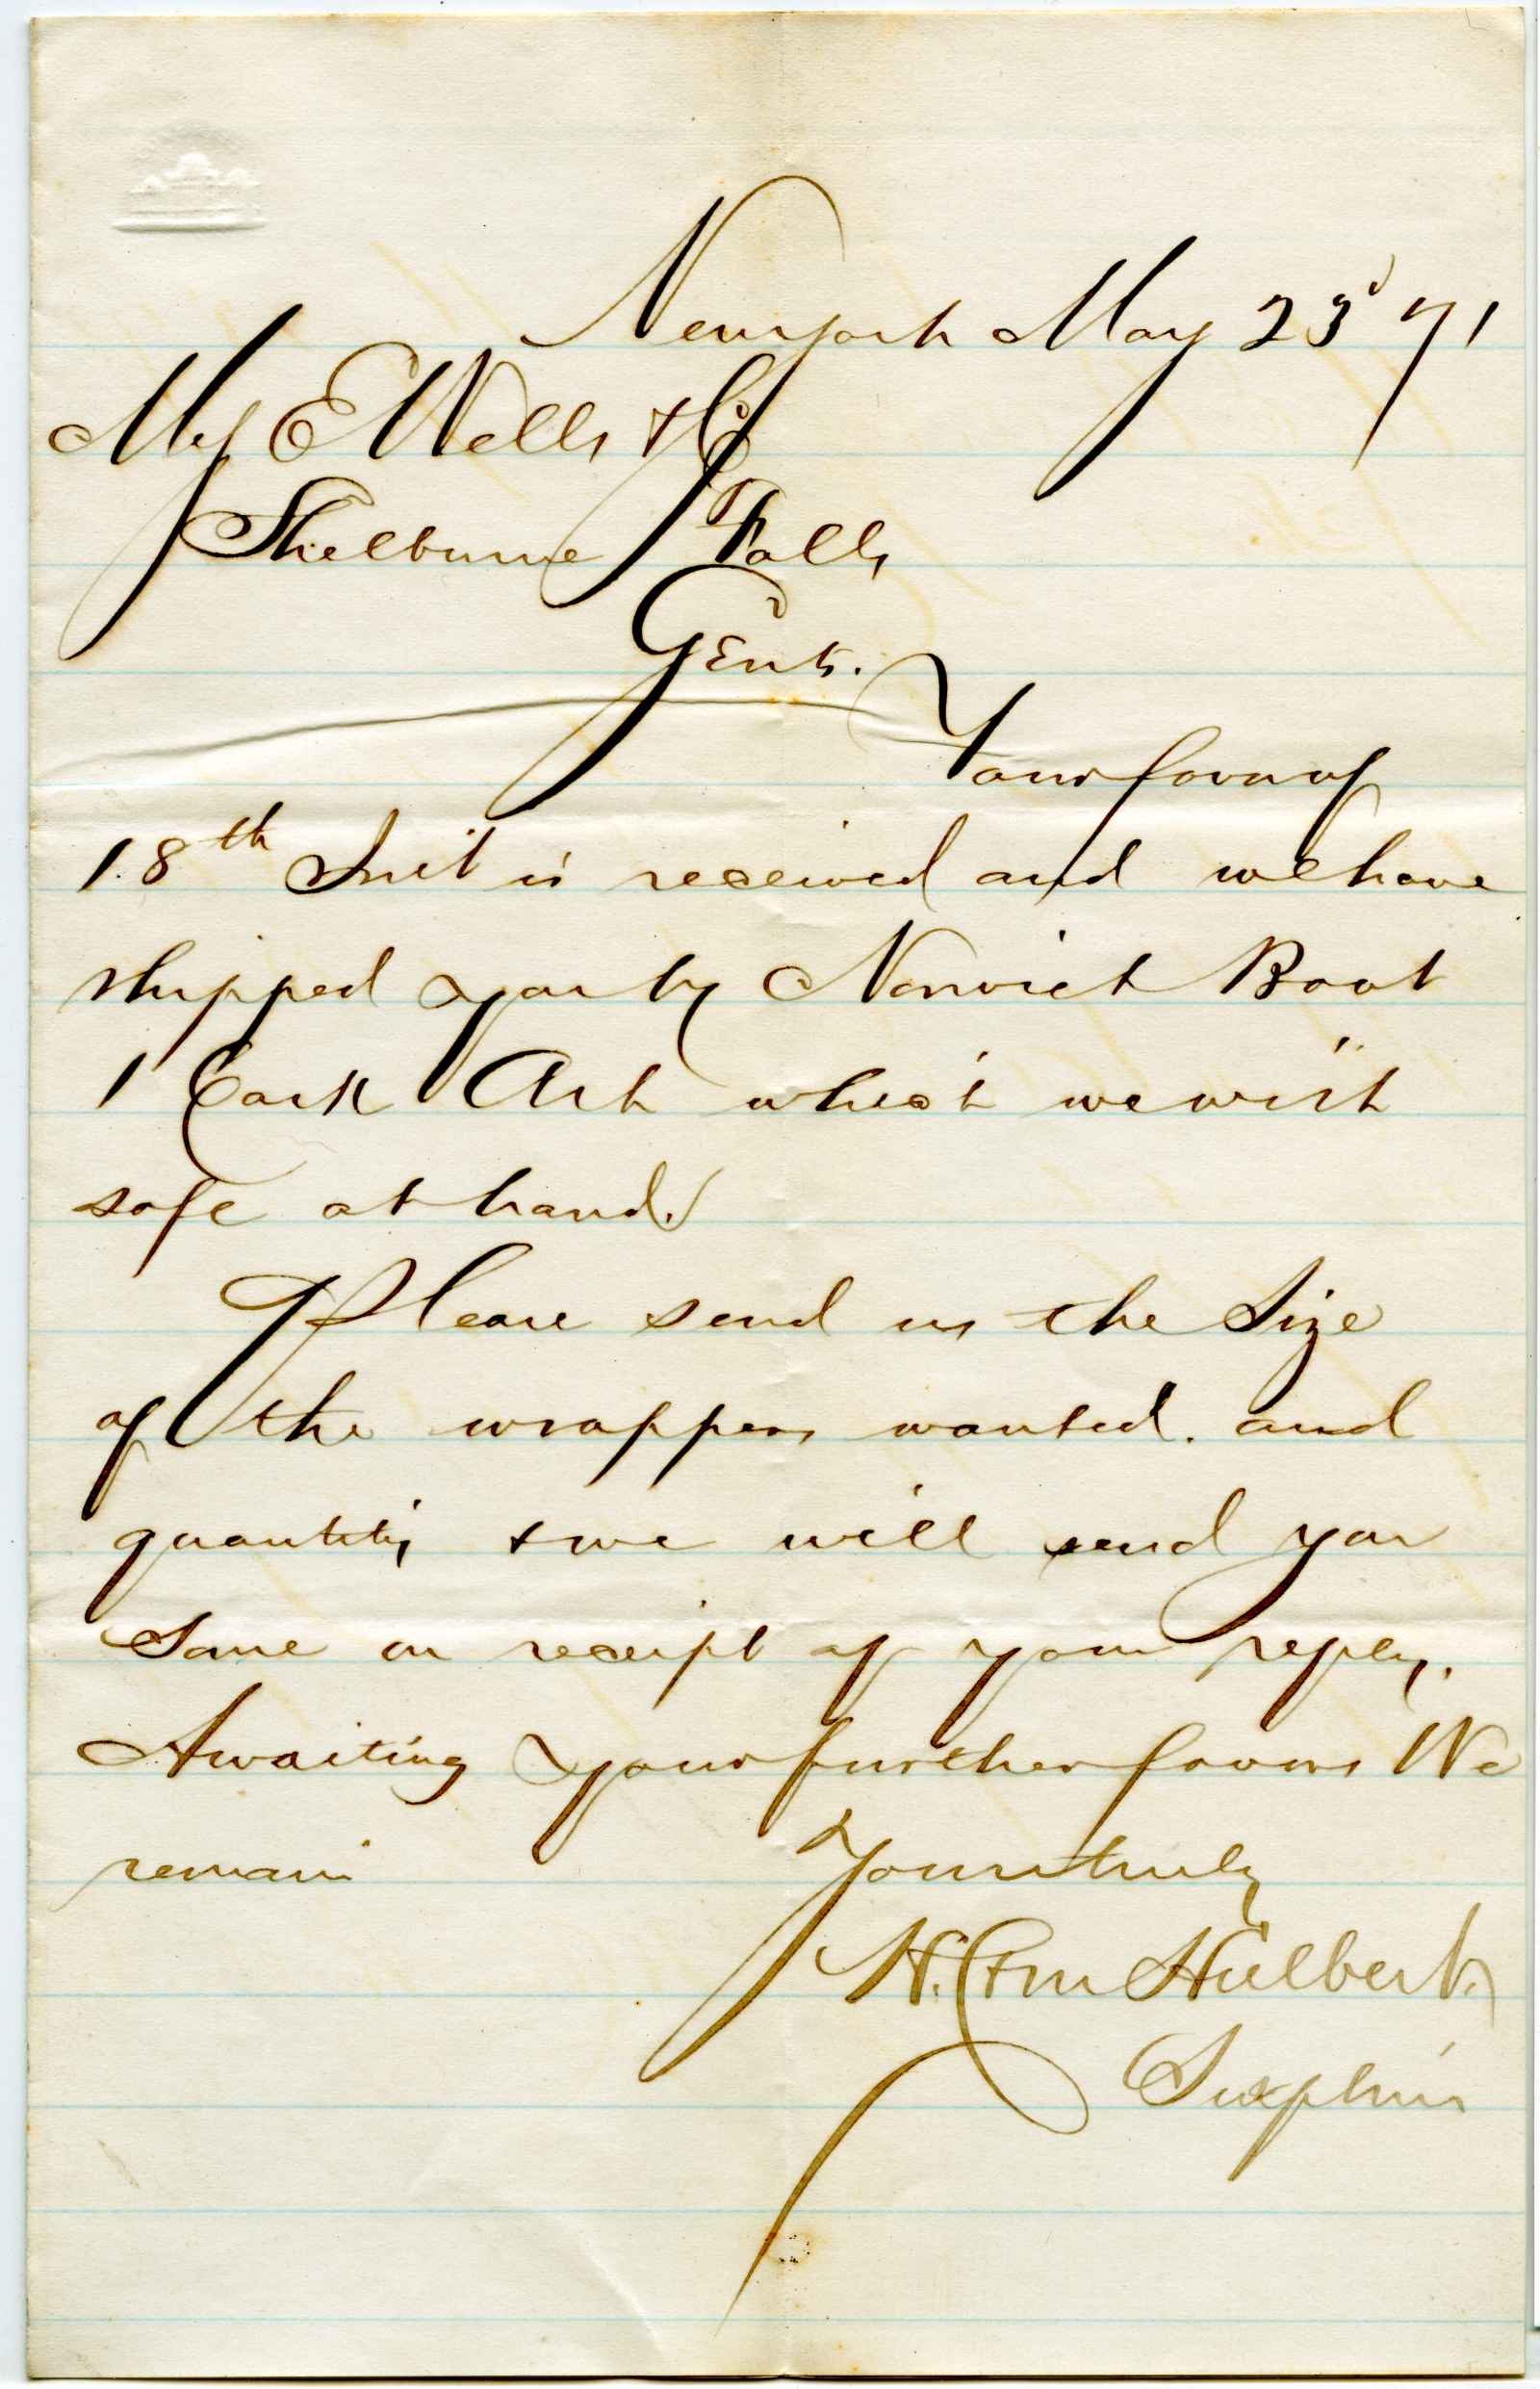 Newyork May 23d 71
Mess E Wells & Co
Shelburne Falls
Gents.
Your favor of
18th Inst is received and we have
shipped you by Norwich Boat
1 Cask Ash which we wish
safe at hand.
Please send us the Size
of the wrappers wanted. and
quantity & we will send you
Same on receipt of your reply.
Awaiting your further favors We
remain
Yours truly
H. C. Hulbert.